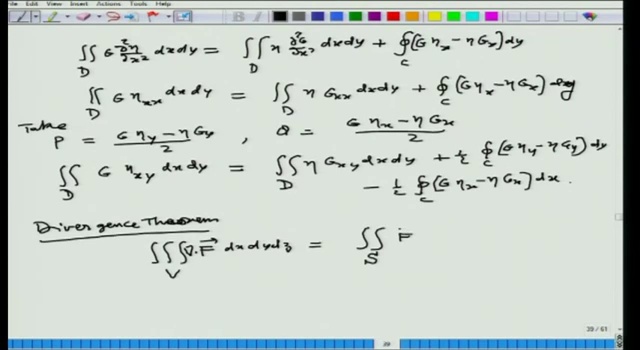 View Insert Actions Tools Help
∬_D G ∂²η/∂x² dxdy = ∬_D η ∂²G/∂x² dxdy + ∮_C (G η_x − η G_x) dy
∬_D G η_xx dxdy = ∬_D η G_xx dxdy + ∮_C (G η_x − η G_x) dy
Take P = (G η_y − η G_y)/2 , Q = (G η_x − η G_x)/2
∬_D G η_xy dxdy = ∬_D η G_xy dxdy + ½ ∮_C (G η_y − η G_y) dy
− ½ ∮_C (G η_x − η G_x) dx.
Divergence Theorem
∭_V ∇.F⃗ dxdydz = ∬_S F
29/61
29